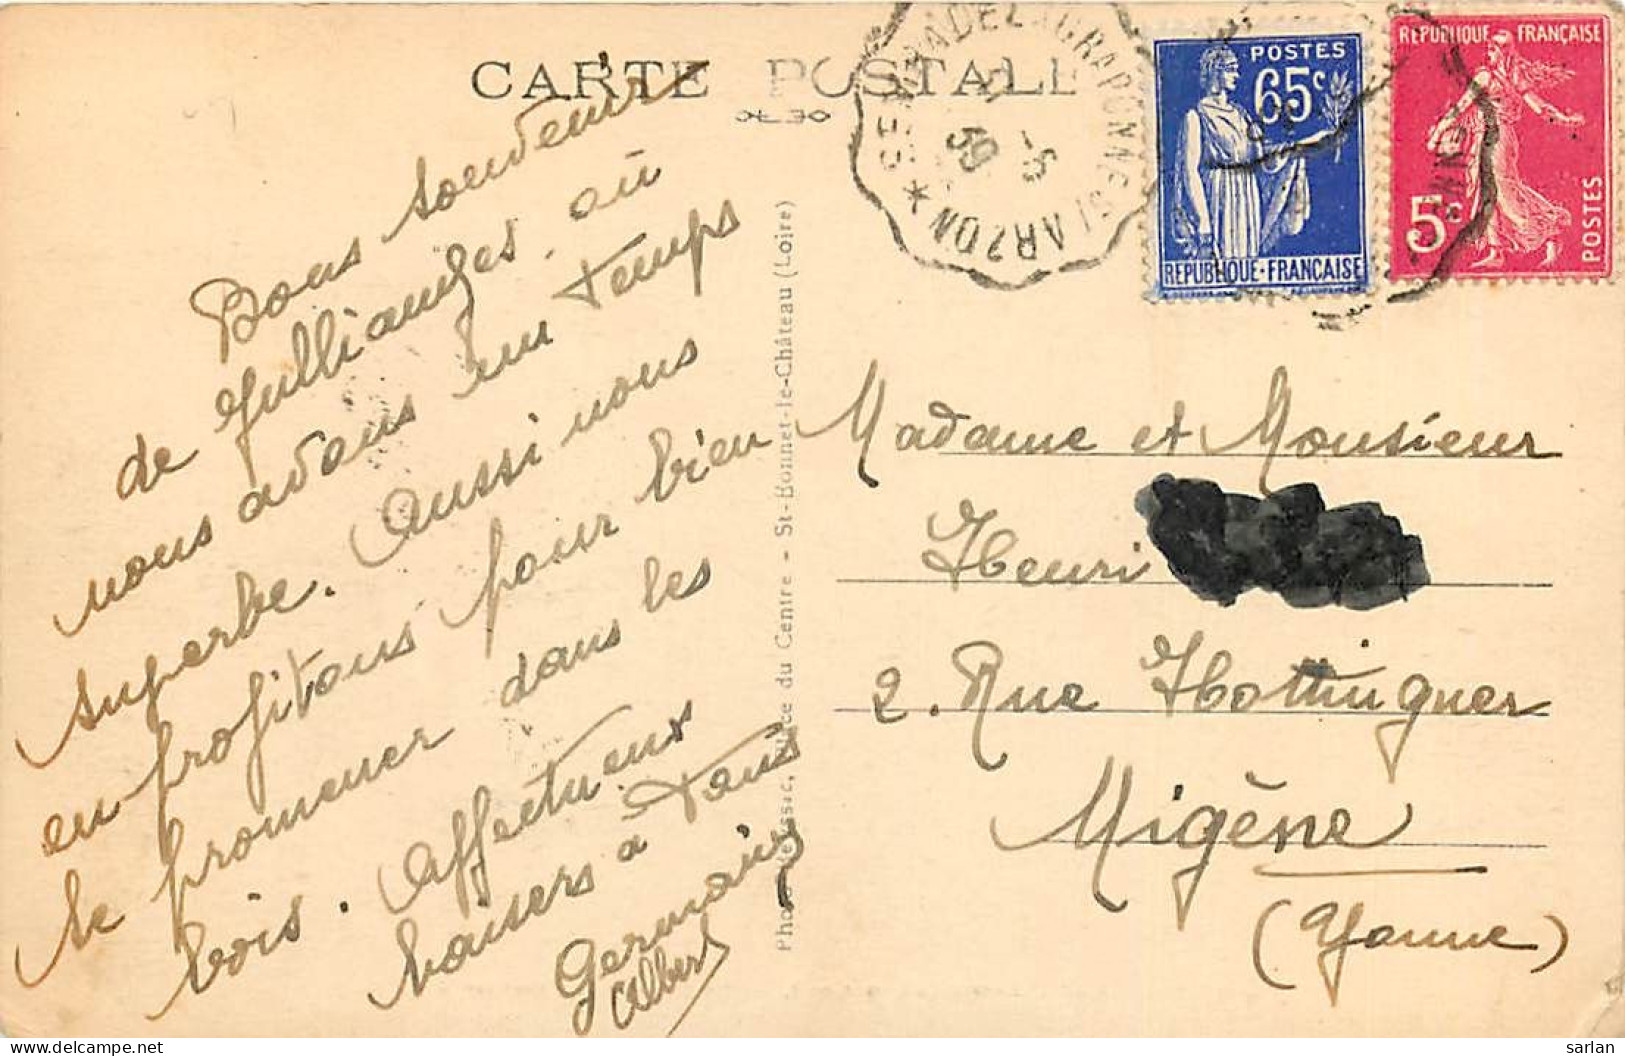 CARTE POSTALE
Bons souvenirs
de Jullianges où
nous avons un temps
superbe. Aussi nous
en profitons pour bien
se promener dans les
bois. Affectueux
baisers à tous
Germaine
Albert
du Centre - St-Bonnet-le-Château (Loire)
ARZON
39
POSTES
65c
REPUBLIQUE-FRANÇAISE
REPUBLIQUE FRANÇAISE
5c
POSTES
Madame et Monsieur
Henri
2. Rue Hottinguer
Migène
(Yonne)
sarlan